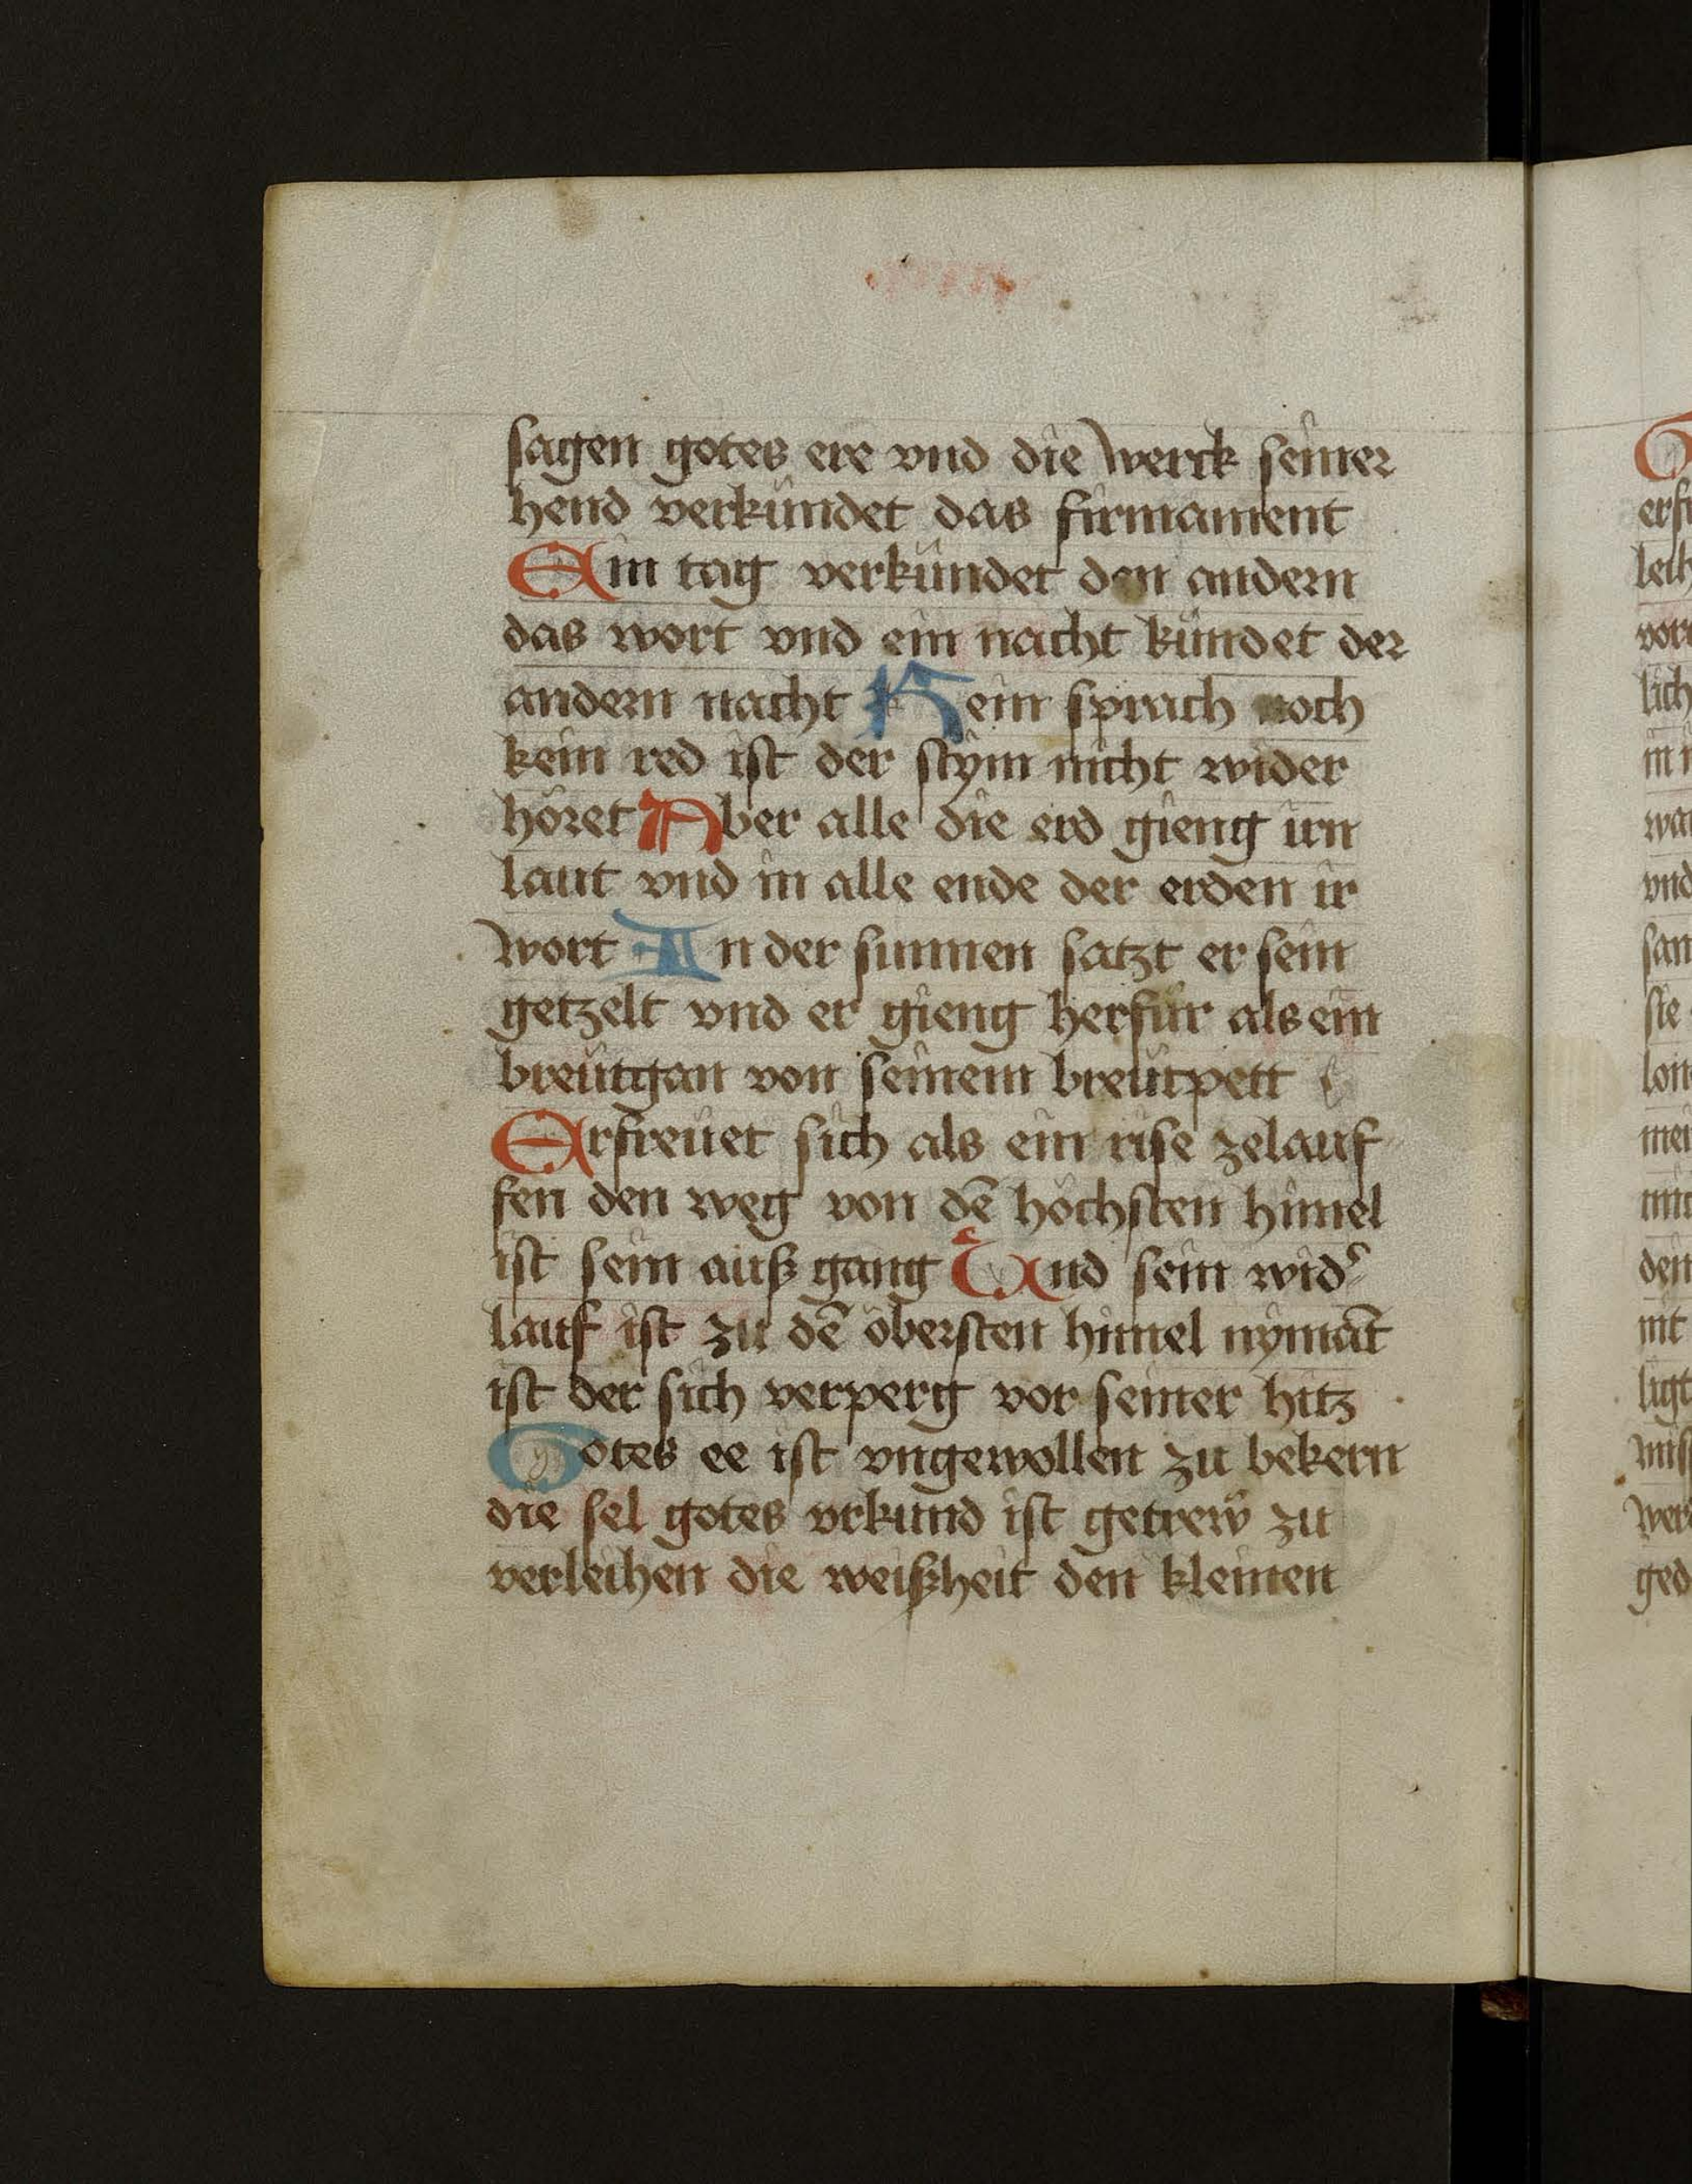 sagen gotes ere vnd die werck seiner
hend verkündet das firmament
Ein tag verkündet den andern
das wort vnd ein nacht kündet der
andern nacht Kein sprach noch
kein red ist der stym nicht wider
höret Aber alle die erd gieng irn
laut vnd in alle ende der erden ir
wort An der sunnen satzt er sein
getzelt vnd er gieng herfür als ein
breütgan von seinem breütpett
Erfreüet sich als ein rise zelauf
fen den weg von dē höchsten himel
ist sein auß gang Und sein wid᷑
lauf ist zu dē öbersten himel nymāt
ist der sich verperg vor seiner hitz
Gotes ee ist vngewollen zu bekern
die sel gotes vrkund ist getrew zu
verleihen die weißheit den kleinen